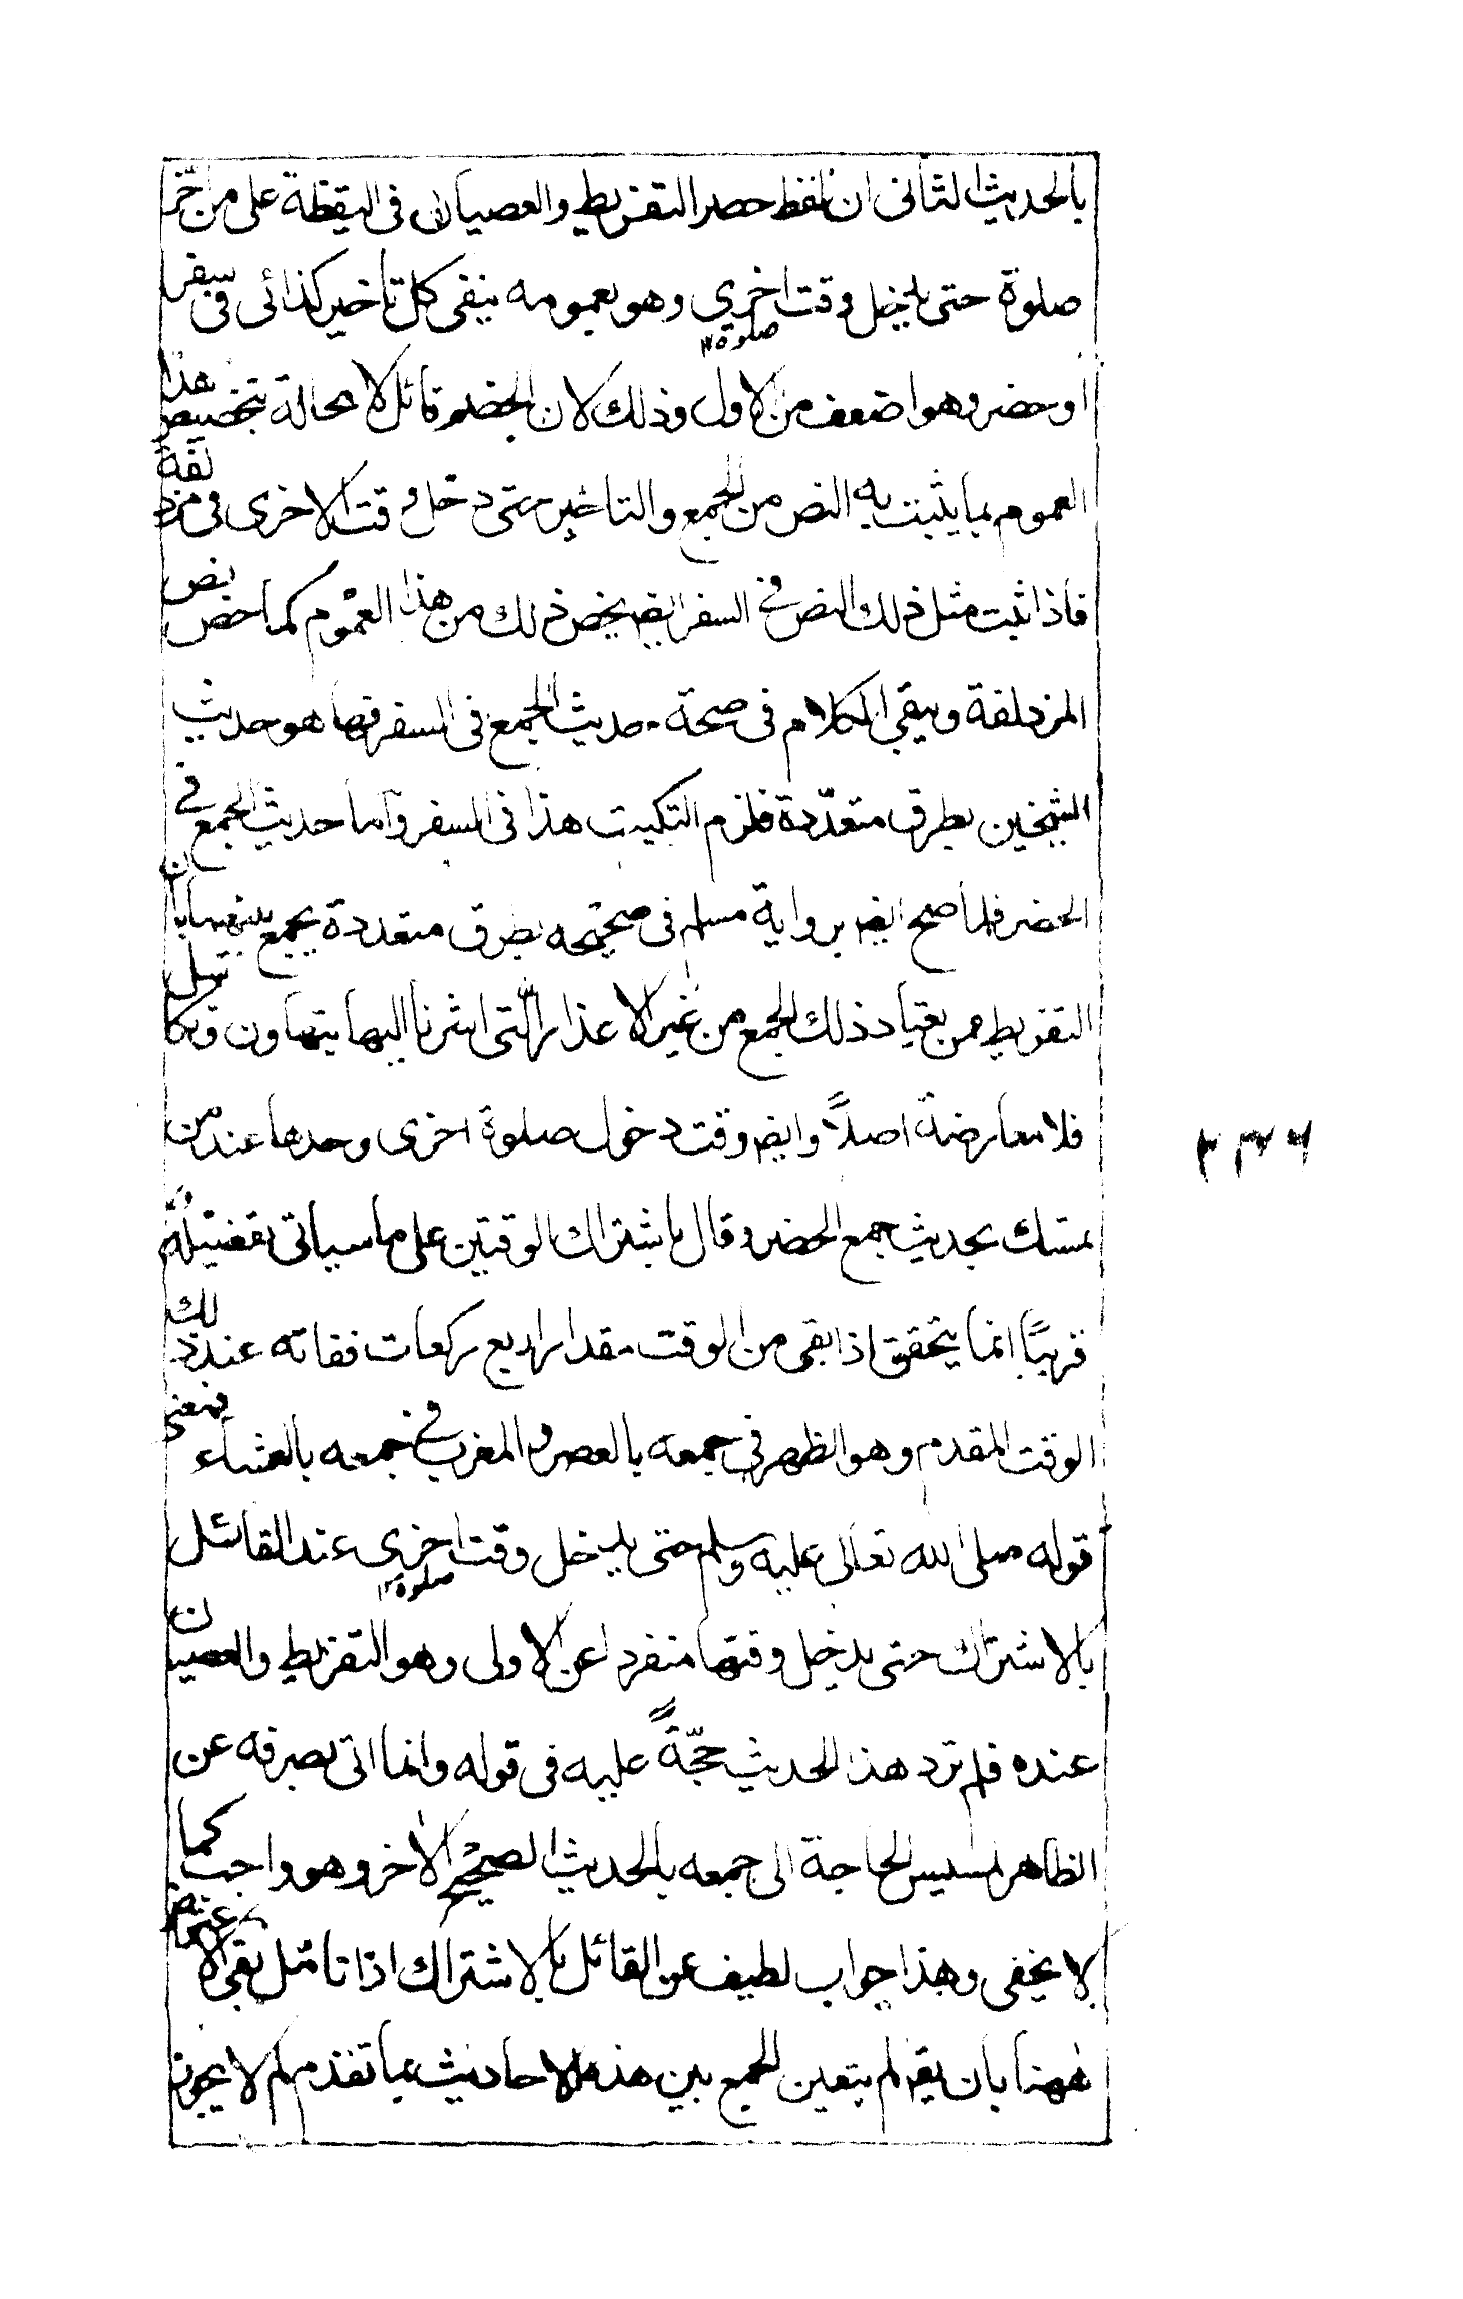 بالحديث الثانى ان لفظ حصر التفريط والعصيان فى اليقظة على من اخّر
صلوة حتى يدخل وقت اخرى وهو بعمومه ينفى كل تاخير كذائى فى سفر
صلوة ١٢
او حضر وهو اضعف من الاول وذلك لان الخصم قائل لا محالة بتخصيص هذا
العموم بما يثبت به النص من الجمع والتاخير حتى دخل وقت الاخرى فى مزدلفة
فاذا ثبت مثل ذلك النص فى السفر ايضم يخص ذلك من هذا العموم كما خص بنص
المزدلفة ويبقى الكلام فى صحة حديث الجمع فى السفر فها هو حديث
الشيخين بطرق متعدّدة فلزم التكيت هذا فى السفر وآما حديث الجمع فى
الحضر فلما صح ايضم برواية مسلم فى صحيحه بطرق متعددة يجمع بينهما بان
التفريط ممن يعتاد ذلك الجمع من غير الاعذار الّتى اشرنا اليها يتهاون وتكاسل
فلا معارضة اصلاً وايضم وقت دخول صلوة اخرى وحدها عند من
يمتسك بحديث جمع الحضر وقال باشتراك الوقتين على ما سياتى تفصيله
قريبًا انما يتحقق اذا بقى من الوقت مقدار اربع ركعات ففاته عند ذلك
الوقت المقدم وهو الظهر فى جمعه بالعصر والمغرب فى جمعه بالعشاء فمعنى
قوله صلى الله تعالى عليه وسلم حتى يدخل وقت اخرى عند القائل
صلوة ١٢
بالاشتراك حتى يدخل وقتها منفردا عن الاولى وهو التفريط والعصيان
عنده فلم ترد هذا الحديث حجّةً عليه فى قوله وانما اتى بصرفه عن
الظاهر لمسيس الحاجة الى جمعه بالحديث الصحيح الاخر وهو واجب كما
لا يخفى وهذا جواب لطيف عن القائل بالاشتراك اذا تامّل بقى الاعتراض
ههنا بان يقم لم يتعين الجمع بين هذه الاحاديث بما تقدم لم لا يجوز
٢٣٦